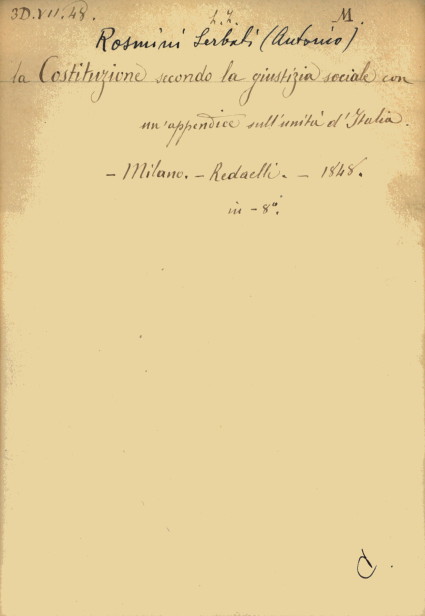 3D.VII.48.
M.
Rosmini Serbati (Antonio)
la Costituzione secondo la giustizia sociale con
un'appendice sull'unità d'Italia.
– Milano. – Redaelli. – 1848.
in – 8°.